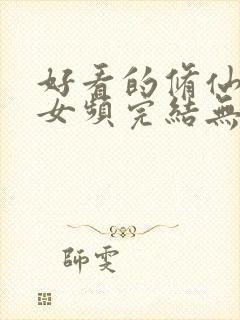 好看的脩仙
女頻完結無
師雯